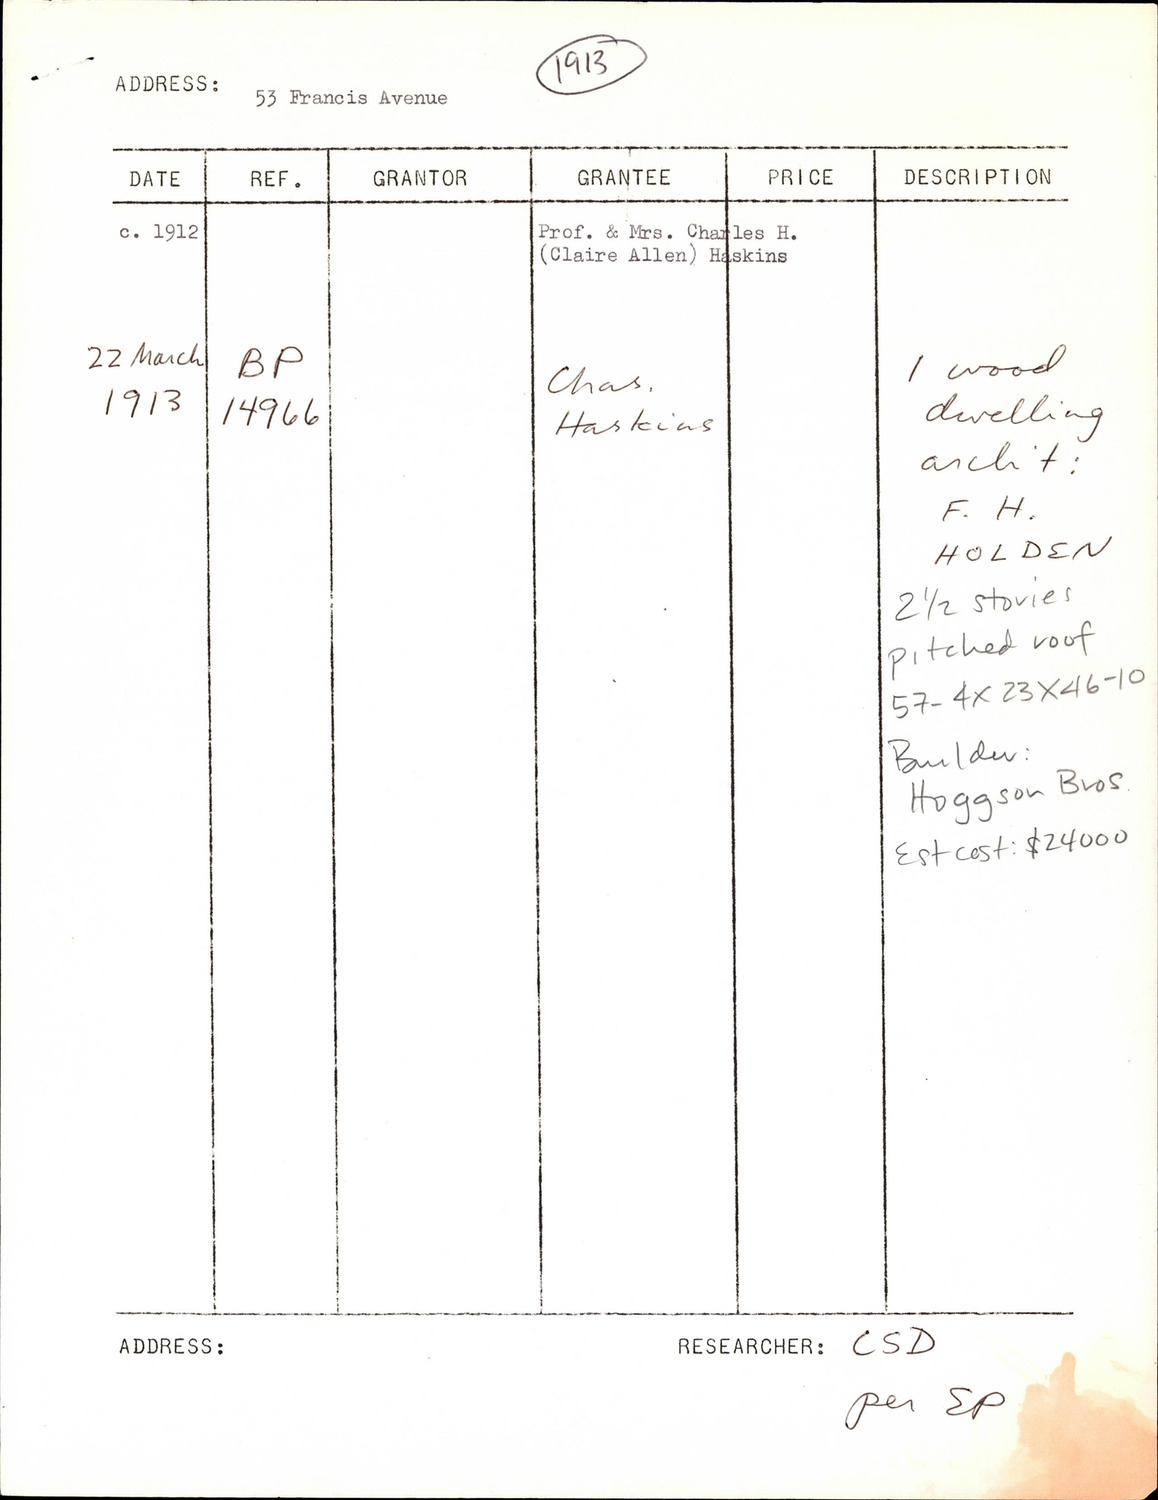 1913
ADDRESS: 53 Francis Avenue
DATE REF. GRANTOR GRANTEE PRICE DESCRIPTION
c. 1912 Prof. & Mrs. Charles H.
(Claire Allen) Haskins
22 March BP Chas. 1 wood
1913 14966 Haskins dwelling
archi't:
F. H.
HOLDEN
2½ stories
pitched roof
57-4X23X46-10
Builder:
Hoggson Bros.
Est cost: $24000
ADDRESS: RESEARCHER: CSD
per EP